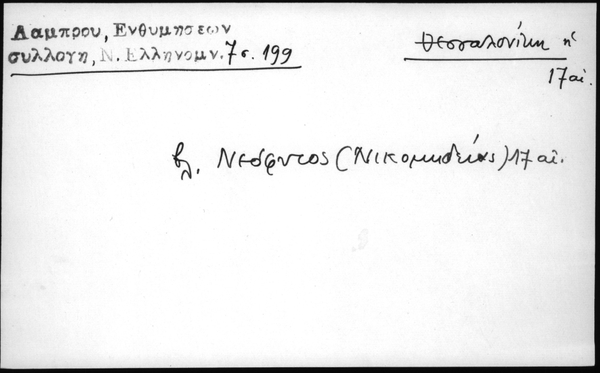 Λαμπρου, Ενθυμησεων
συλλογη, Ν. Ελληνομν. 7 σ. 199
Θεσσαλονίκη ή
17 αἰ.
βλ. Νεόφυτος (Νικομηδείας) 17 αἰ.